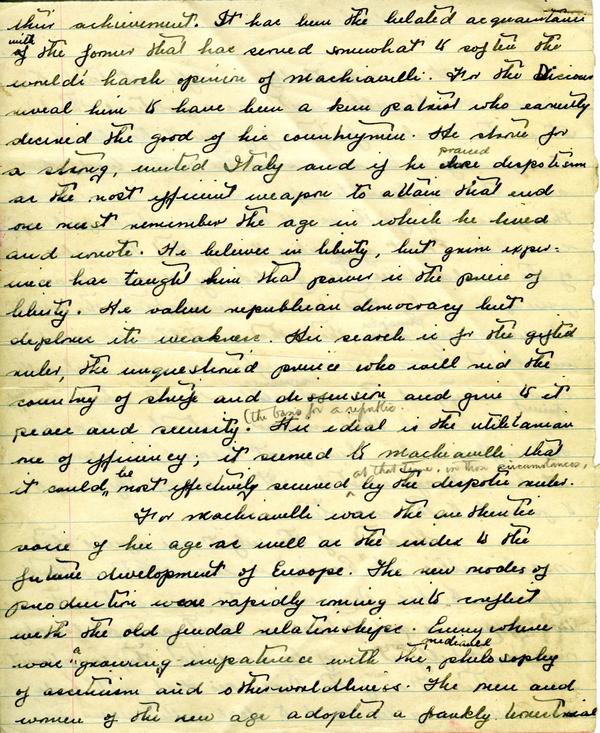 their achievement. It has been the belated acquaintance
with
of the former that has served somewhat to soften the
world's harsh opinion of Machiavelli. For the Discourses
reveal him to have been a keen patriot who earnestly
desired the good of his countrymen. He strove for
praised
a strong, united Italy and if he despotism
as the most efficient weapon to attain that end
one must remember the age in which he lived
and wrote. He believes in liberty, but grim exper-
ience has taught him that power is the price of
liberty. He values republican democracy but
deplores its weakness. His search is for the gifted
ruler, the unquestioned prince who will rid the
country of strife and dissension and give to it
(the basis for a republic.
peace and security. His ideal is the utilitarian
one of efficiency; it seemed to Machiavelli that
at that time, in those circumstances,
be
it could most effectively secured by the despotic ruler.
For Machiavelli was the authentic
voice of his age as well as the index to the
future development of Europe. The new modes of
production were rapidly coming into conflict
with the old feudal relationships. Everywhere
mediaeval
was a "growing" impatience with the philosophy
of asceticism and otherworldliness. The men and
women of the new age adopted a frankly terrestrial